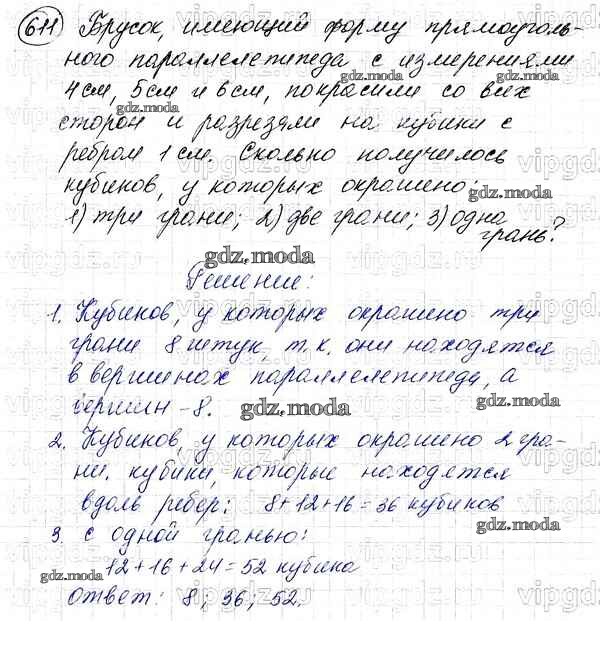 611 Брусок, имеющий форму прямоуголь-
ного параллелепипеда с измерениями
4 см, 5 см и 6 см, покрасили со всех
сторон и разрезали на кубики с
ребром 1 см. Сколько получилось
кубиков, у которых окрашено:
1) три грани; 2) две грани; 3) одна
грань?
Решение:
1. Кубиков, у которых окрашено три
грани 8 штук, т.к. они находятся
в вершинах параллелепипеда, а
вершин – 8.
2. Кубиков, у которых окрашено 2 гра-
ни. кубики, которые находятся
вдоль ребер: 8+12+16=36 кубиков
3. с одной гранью:
12+16+24=52 кубика
ответ: 8; 36; 52.
gdz.moda
vipgdz